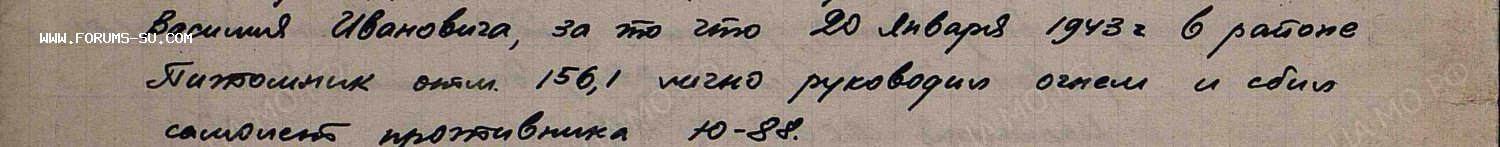 Василия Ивановича, за то что 20 января 1943 г в районе
WWW.FORUMS-SU.COM
Питомник отм. 156,1 лично руководил огнем и сбил
самолет противника Ю-88.